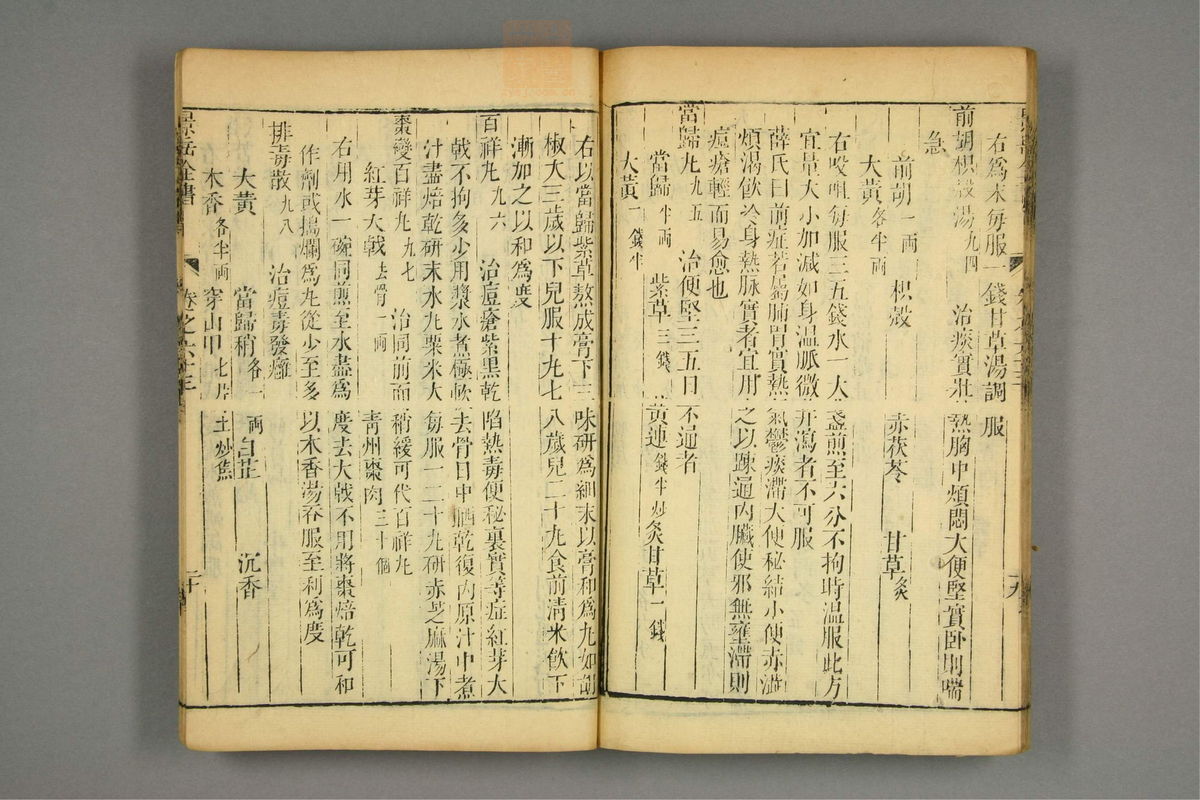 右爲末每服一錢甘草湯調服
前胡枳殼湯九四 治痰實壯熱胸中煩悶大便堅實卧則喘
急
前胡一兩 枳殼 赤茯苓 甘草炙
大黃各半兩
右㕮咀每服三五錢水一大盞煎至六分不拘時温服此方
宜量大小加減如身温脈微并瀉者不可服
薛氏曰前症若屬腸胃實熱氣鬱痰滯大便秘結小便赤澁
煩渴飲冷身熱脉實者宜用之以踈通內臟使邪無壅滯則
痘瘡輕而易愈也
當歸丸九五 治便堅三五日不通者
當歸半兩 紫草三錢 黃連錢半炒 炙甘草一錢
大黃一錢半
右以當歸紫草熬成膏下三味研爲細末以膏和爲丸如胡
椒大三歲以下兒服十丸七八歲兒二十丸食前清米飲下
漸加之以和爲度
百祥丸九六 治痘瘡紫黑乾陷熱毒便秘裏實等症紅芽大
戟不拘多少用漿水煮極軟去骨日中晒乾復內原汁中煮
汁盡焙乾研末水丸粟米大每服一二十丸研赤芝麻湯下
棗變百祥丸九七 治同前面稍緩可代百祥丸
紅芽大戟去骨一兩 青州棗肉三十個
右用水一碗同煎至水盡爲度去大戟不用將棗焙乾可和
作劑或搗爛爲丸從少至多以木香湯吞服至利爲度
排毒散九八 治痘毒發癰
大黃 當歸稍各一兩 白芷 沉香
木香各半兩 穿山甲七片土炒焦
景岳全書 卷之六十三 二十